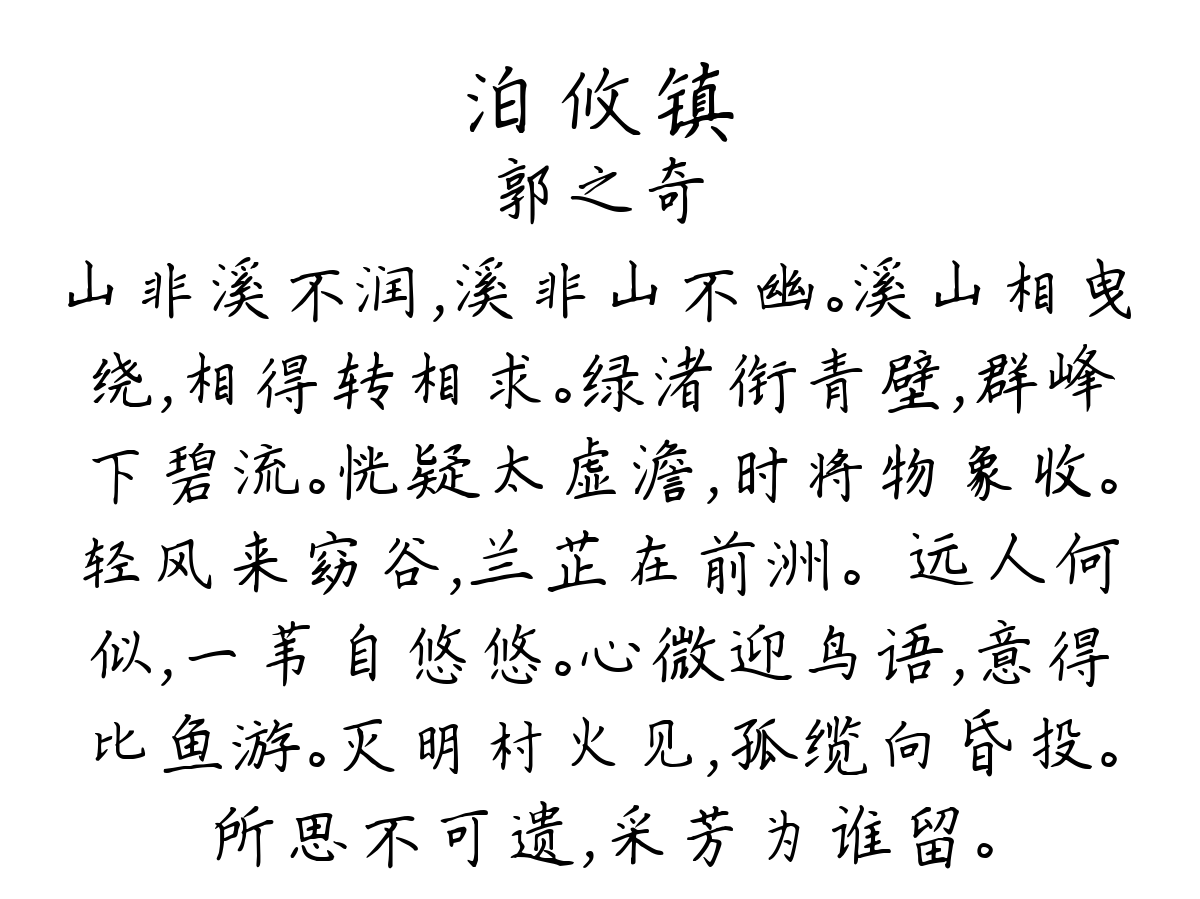 泊攸镇
郭之奇
山非溪不润,溪非山不幽。溪山相曳
绕,相得转相求。绿渚衔青壁,群峰
下碧流。恍疑太虚澹,时将物象收。
轻风来窈谷,兰芷在前洲。远人何
似,一苇自悠悠。心微迎鸟语,意得
比鱼游。灭明村火见,孤缆向昏投。
所思不可遗,采芳为谁留。